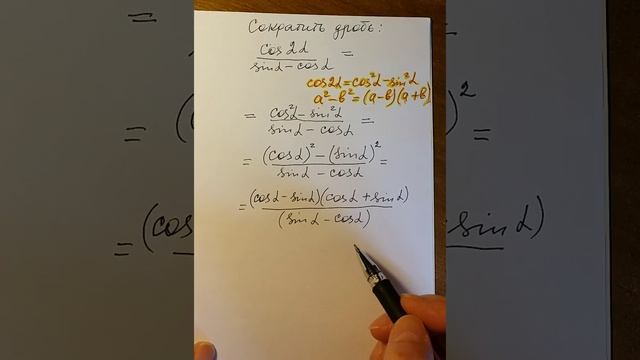 Сократить дробь:
cos2α / sinα - cosα =
cos2α = cos²α - sin²α
a² - b² = (a - b)(a + b)
= cos²α - sin²α / sinα - cosα =
= (cosα)² - (sinα)² / sinα - cosα =
= (cosα - sinα)(cosα + sinα) / (sinα - cosα)